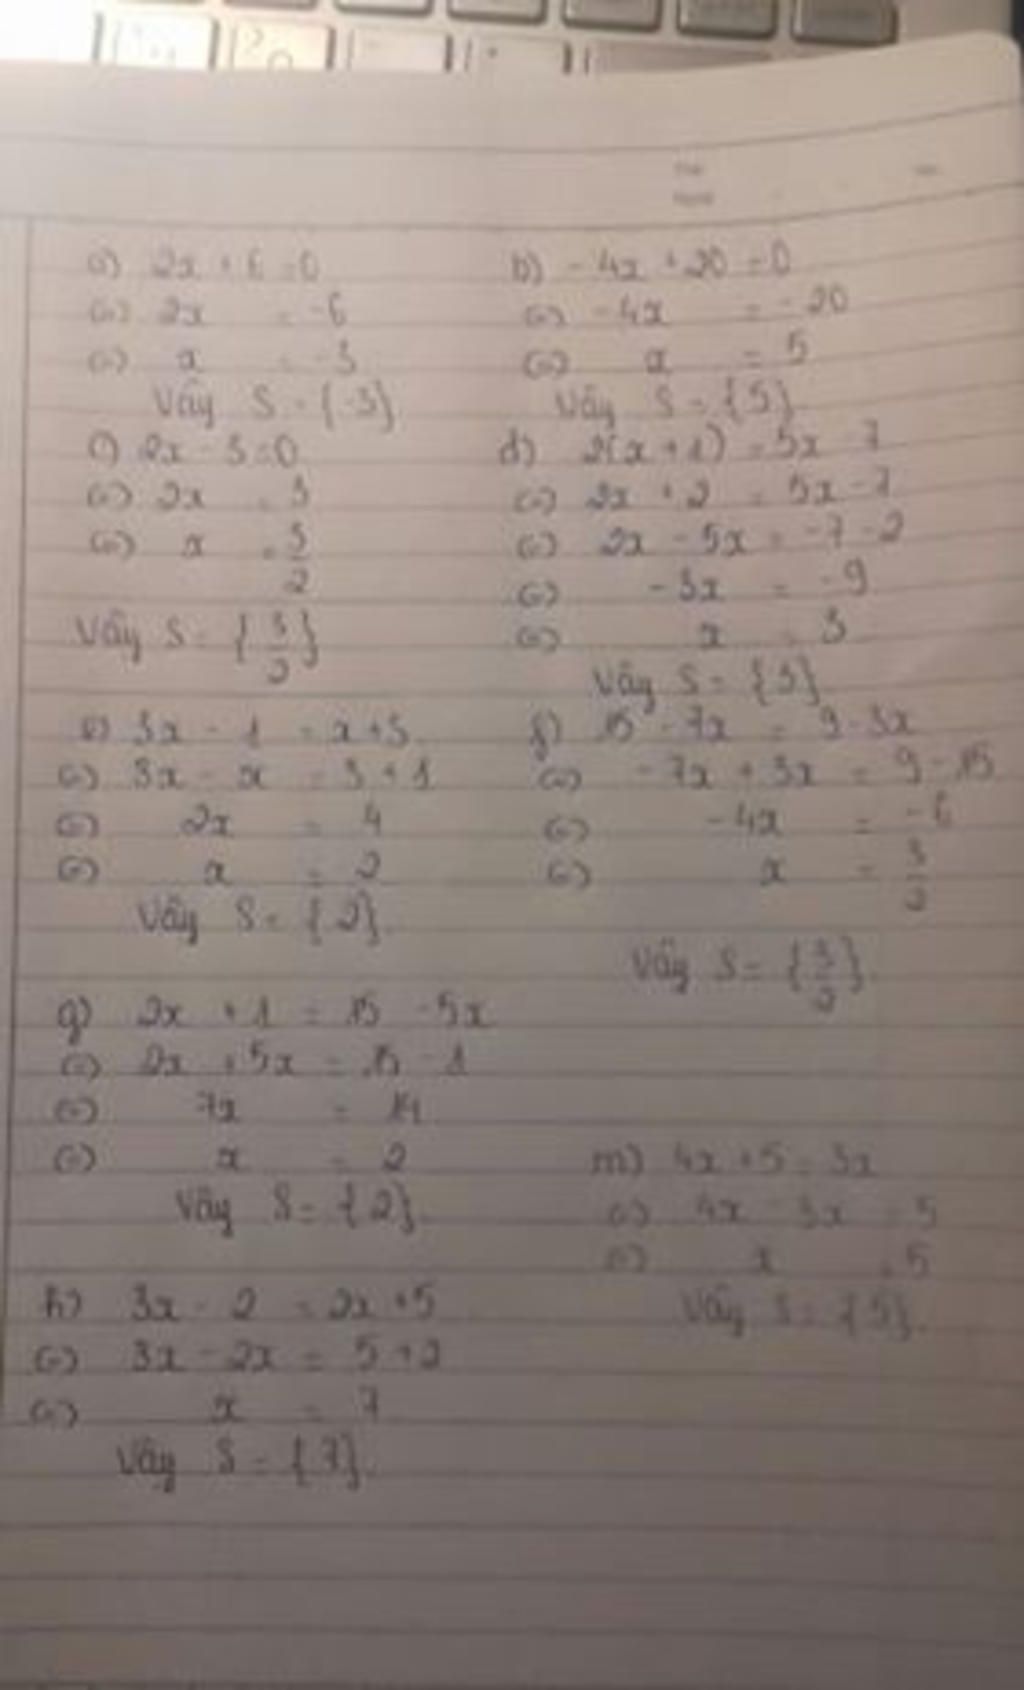 a) 2x + 6 = 0
<=> 2x = -6
<=> x = -3
Vậy S = {-3}
b) -4x + 20 = 0
<=> -4x = -20
<=> x = 5
Vậy S = {5}
c) 2x - 3 = 0
<=> 2x = 3
<=> x = 3/2
Vậy S = {3/2}
d) 2(x + 1) = 5x - 7
<=> 2x + 2 = 5x - 7
<=> 2x - 5x = -7 - 2
<=> -3x = -9
<=> x = 3
Vậy S = {3}
e) 3x - 1 = x + 3
<=> 3x - x = 3 + 1
<=> 2x = 4
<=> x = 2
Vậy S = {2}
f) 15 - 7x = 9 - 3x
<=> -7x + 3x = 9 - 15
<=> -4x = -6
<=> x = 3/2
Vậy S = {3/2}.
g) 2x + 1 = 15 - 5x
<=> 2x + 5x = 15 - 1
<=> 7x = 14
<=> x = 2
Vậy S = {2}
h) 3x - 2 = 2x + 5
<=> 3x - 2x = 5 + 2
<=> x = 7
Vậy S = {7}.
m) 4x + 5 = 3x
<=> 4x - 3x = 5
<=> x = 5
Vậy S = {5}.